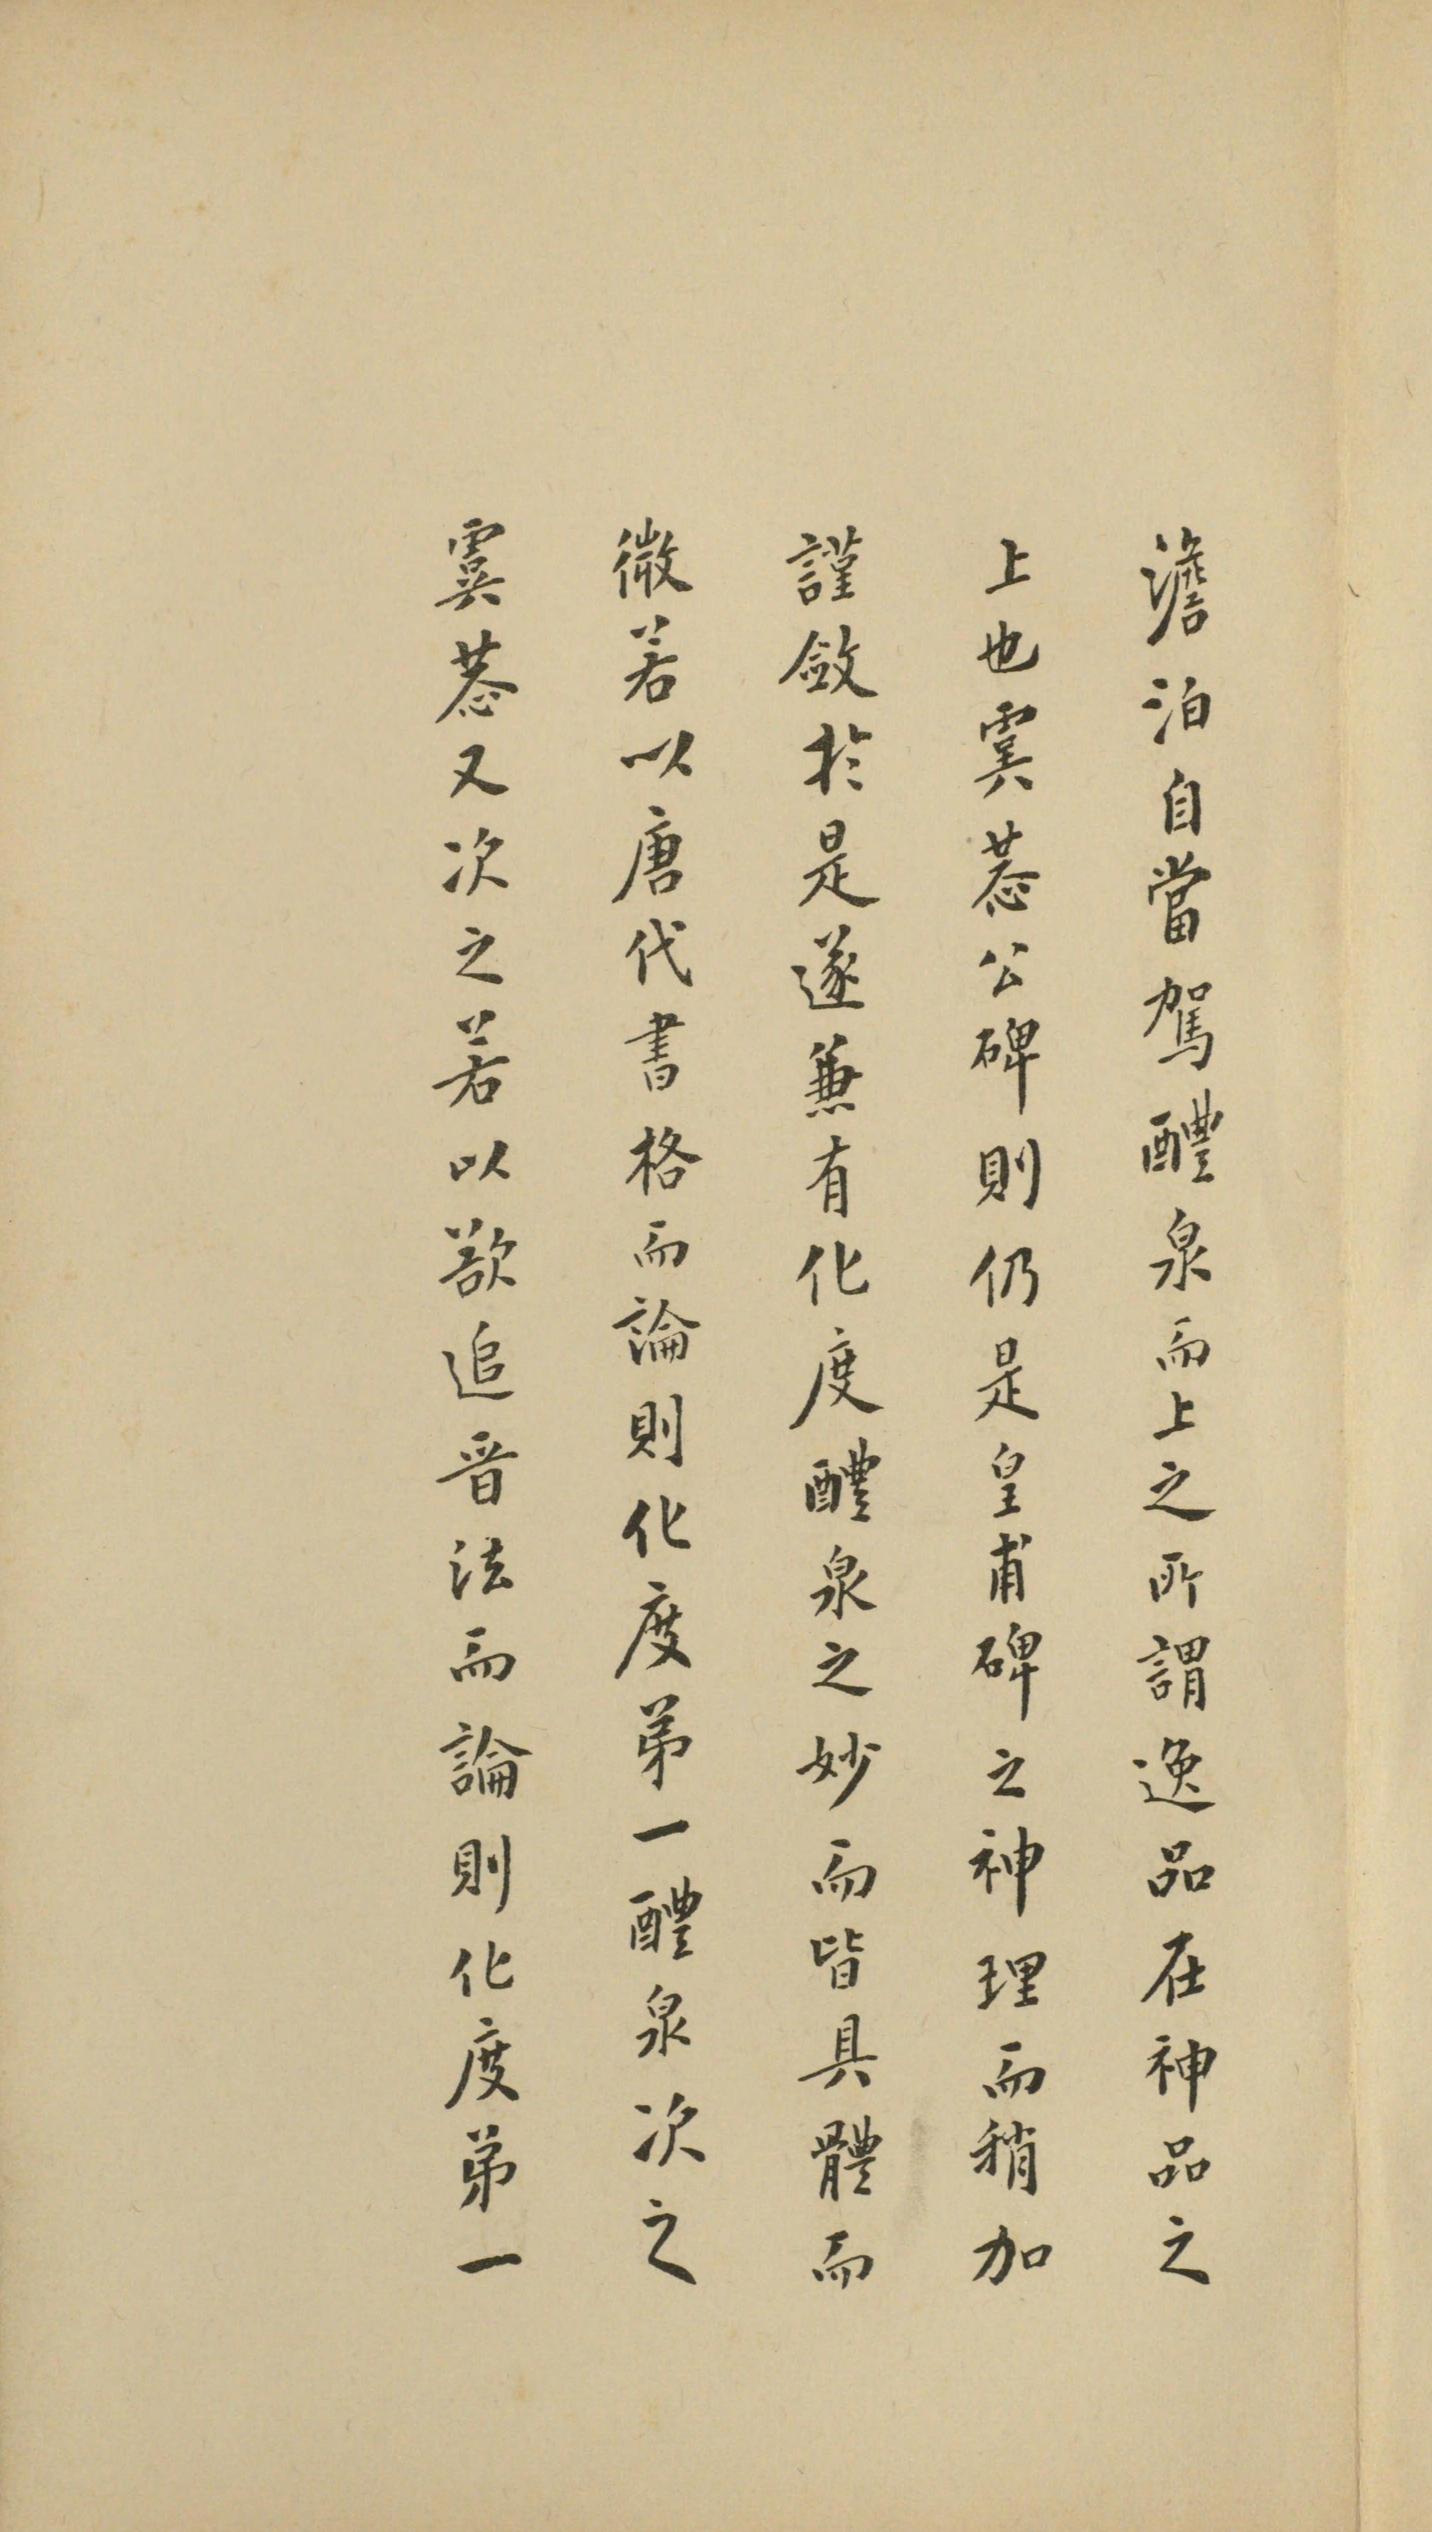 澹泊自當駕醴泉而上之所謂逸品在神品之
上也虞恭公碑則仍是皇甫碑之神理而稍加
謹斂於是遂兼有化度醴泉之妙而皆具體而
微若以唐代書格而論則化度弟一醴泉次之
虞恭又次之若以欲追晉法而論則化度弟一